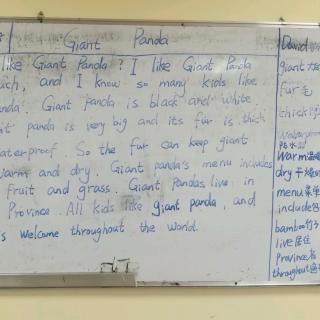 Giant Panda
like Giant Panda? I like Giant Panda
much, and I know so many kids like
Panda. Giant Panda is black and white
Giant panda is very big and its fur is thick
waterproof. So the fur can keep giant
warm and dry. Giant panda's menu includes
fruit and grass. Giant Pandas live in
Province. All kids like giant panda, and
is welcome throughout the world.
David
giant
fur 毛
thick
waterproof
防水
warm温暖
dry 干燥
menu菜单
include包
bamboo竹子
live居住
Province省
throughout